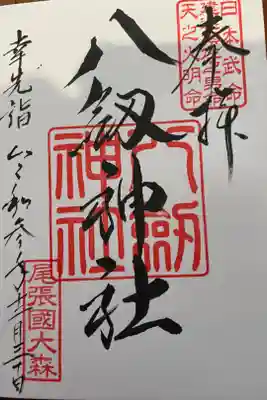 奉拝
日本武命
天之火明命
八剱神社
八劔神社
幸先詣 令和参年十二月三十日
尾張國大森